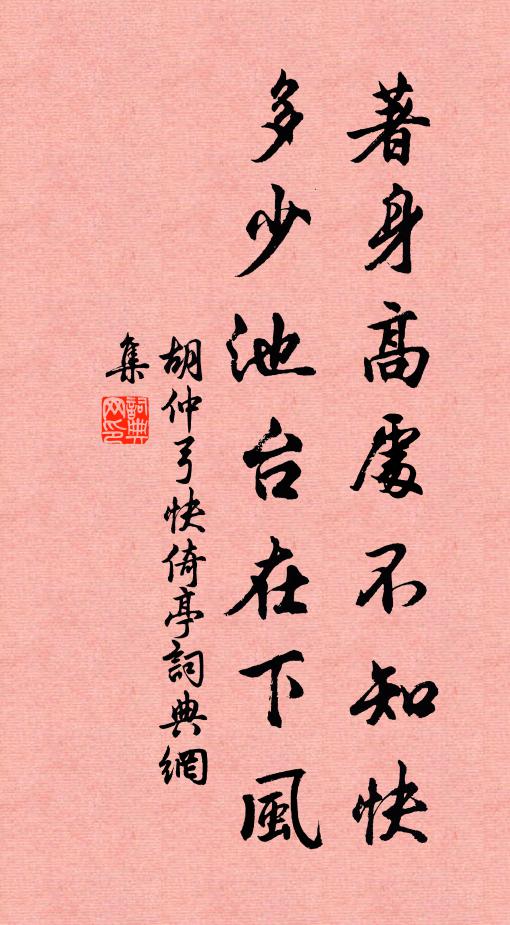 著身高處不知快
多少池台在下風
胡仲弓快倚亭詞典網
集
詞典網印